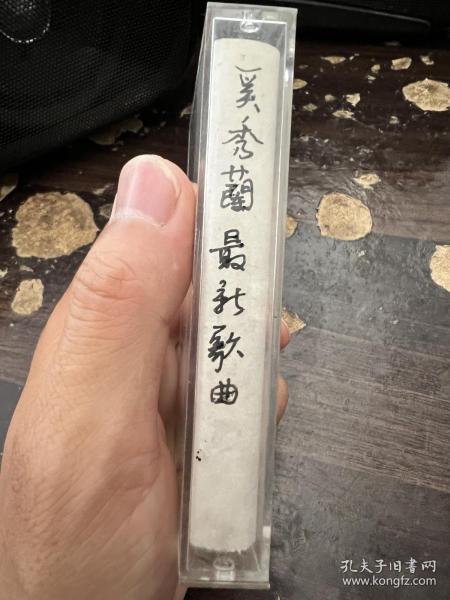 奚秀蘭最新歌曲
孔夫子旧书网
www.kongfz.com